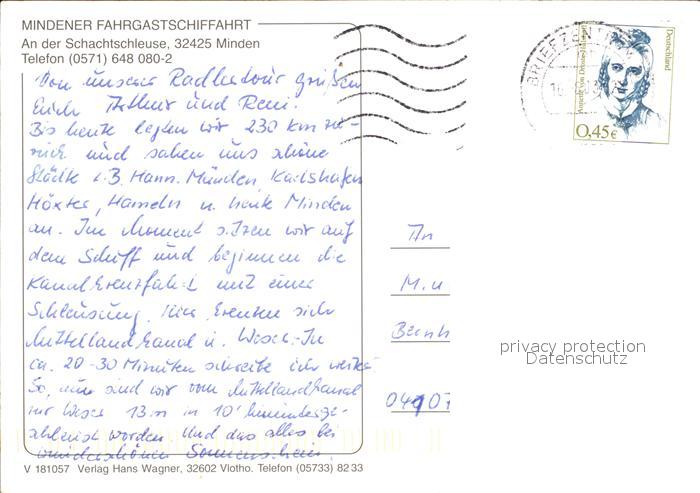 MINDENER FAHRGASTSCHIFFAHRT
An der Schachtschleuse, 32425 Minden
Telefon (0571) 648 080-2
Von unserer Radlertour grüßen
Euch Arthur und Reni.
Bis heute legten wir 230 km zu-
rück und sahen uns schöne
Städte z.B. Hann. Münden, Karlshafen
Höxter, Hameln u. heute Minden
an. Im Moment sitzen wir auf
dem Schiff und beginnen die
Kanalkreuzfahrt mit einer
Schleusung. Hier kreuzen sich
Mittellandkanal u. Weser. In
ca. 20-30 Minuten schreibe ich weiter
So, nun sind wir vom Mittellandkanal
zur Weser 13 m in 10' hinunterge-
schleust worden. Und das alles bei
wunderschönem Sonnenschein.
V 181057 Verlag Hans Wagner, 32602 Vlotho. Telefon (05733) 82 33
BRIEFZENTR
Annette von Droste-Hülshoff
Deutschland
0,45€
An
M. u
Bernh
04107
privacy protection
Datenschutz